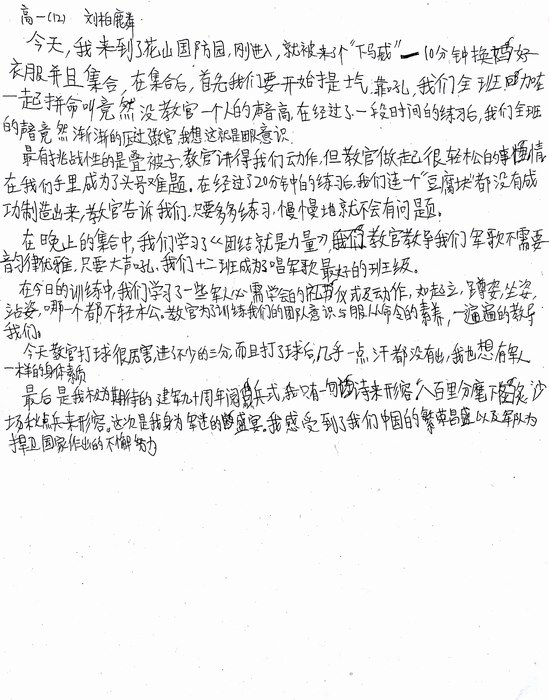 高一(12) 刘柏麟
今天,我来到了花山国防园,刚进入,就被来了个"下马威"一10分钟换好
衣服并且集合,在集合后,首先我们要开始提士气,靠吼,我们全班努力在
一起拼命叫竟然没教官一个人的声音高,在经过了一段时间的练习后,我们全班
的声音竟然渐渐的压过教官,我想这就是团队意识.
最有挑战性的是叠被子,教官讲得我们动作,但教官做起很轻松的事情
在我们手里成为了头号难题.在经过了20分钟中的练习后,我们连一个"豆腐块"都没有成
功制造出来,教官告诉我们.只要多多练习,慢慢地就不会有问题.
在晚上的集合中,我们学习了《团结就是力量》,教官教导我们军歌不需要
韵律优雅,只要大声吼,我们十二班成为了唱军歌最好的班级.
在今日的训练中,我们学习了一些军人必需学会的礼节仪式及动作,如起立,蹲姿,坐姿,
站姿,哪一个都不轻松.教官为了训练我们的团队意识与服从命令的素养,一遍遍的教导
我们.
今天教官打球很厉害,进了不少的三分,而且打了球后,几乎一点汗都没有出,我也想有军人
一样的身体素质
最后是我极为期待的建军九十周年阅兵式,我只有一句诗来形容"八百里分麾下炙,沙
场秋点兵来形容.这次是我身为军迷的盛宴.我感受到了我们中国的繁荣昌盛以及军队为
捍卫国家作出的不懈努力